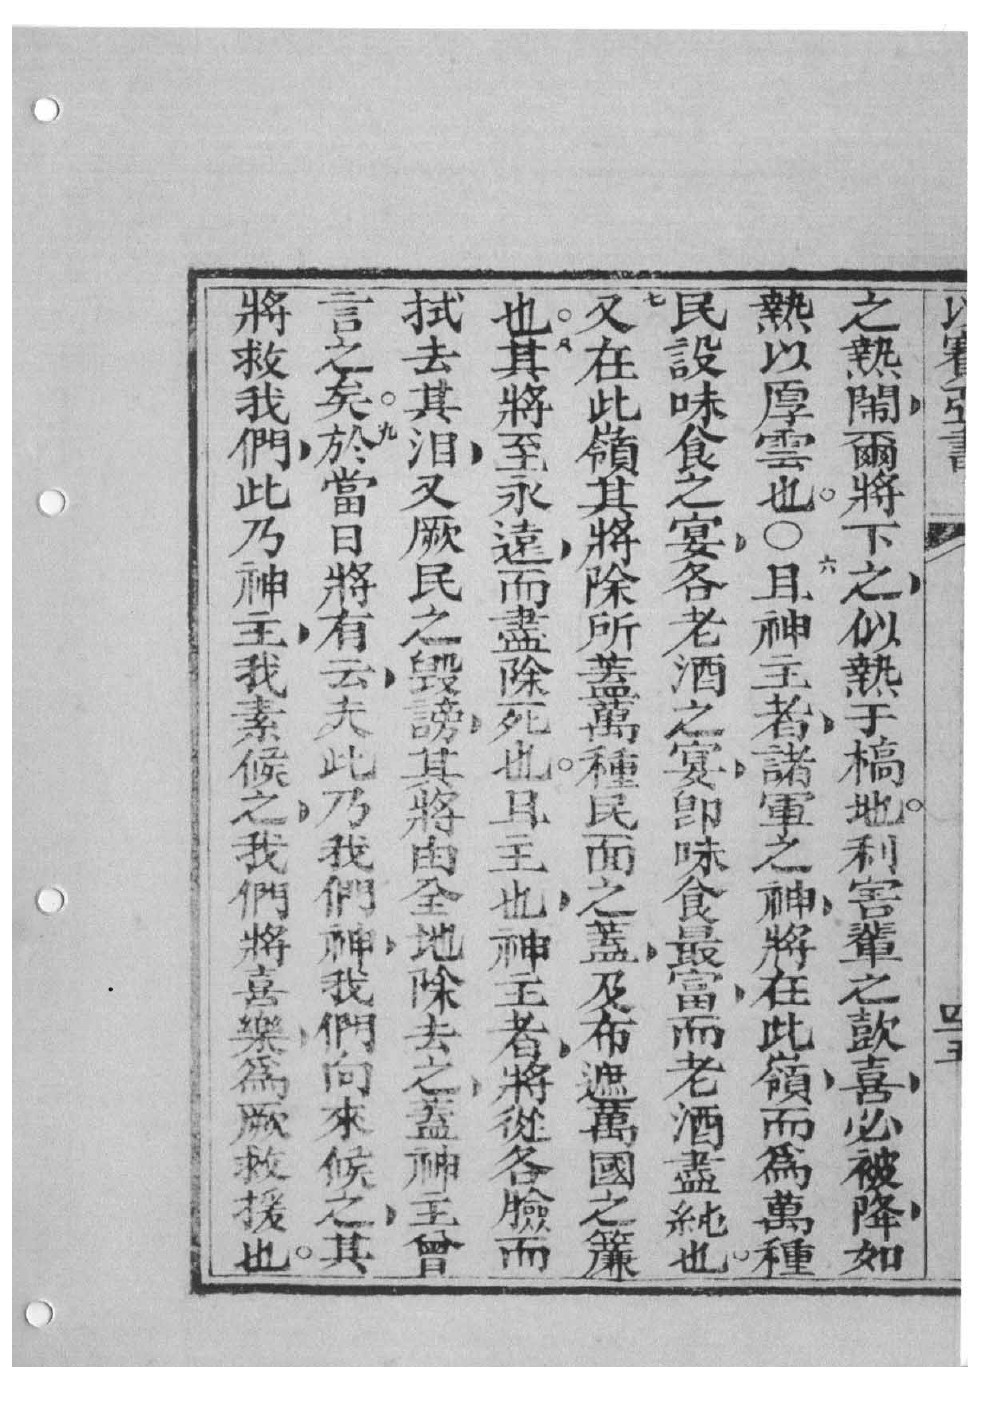 以賽亞書
四五
之熱鬧爾將下之似熱于槁地。利害輩之歆喜必被降如
熱以厚雲也。〇六且神主者諸軍之神將在此嶺而爲萬種
民設味食之宴各老酒之宴卽味食最富而老酒盡純也。
七又在此嶺其將除所蓋萬種民面之蓋及布遮萬國之簾
也。八其將至永遠而盡除死也。且主也神主者將從各臉而
拭去其泪又厥民之毀謗其將由全地除去之蓋神主曾
言之矣。九於當日將有云夫此乃我們神我們向來候之其
將救我們此乃神主我素候之我們將喜樂爲厥救援也。